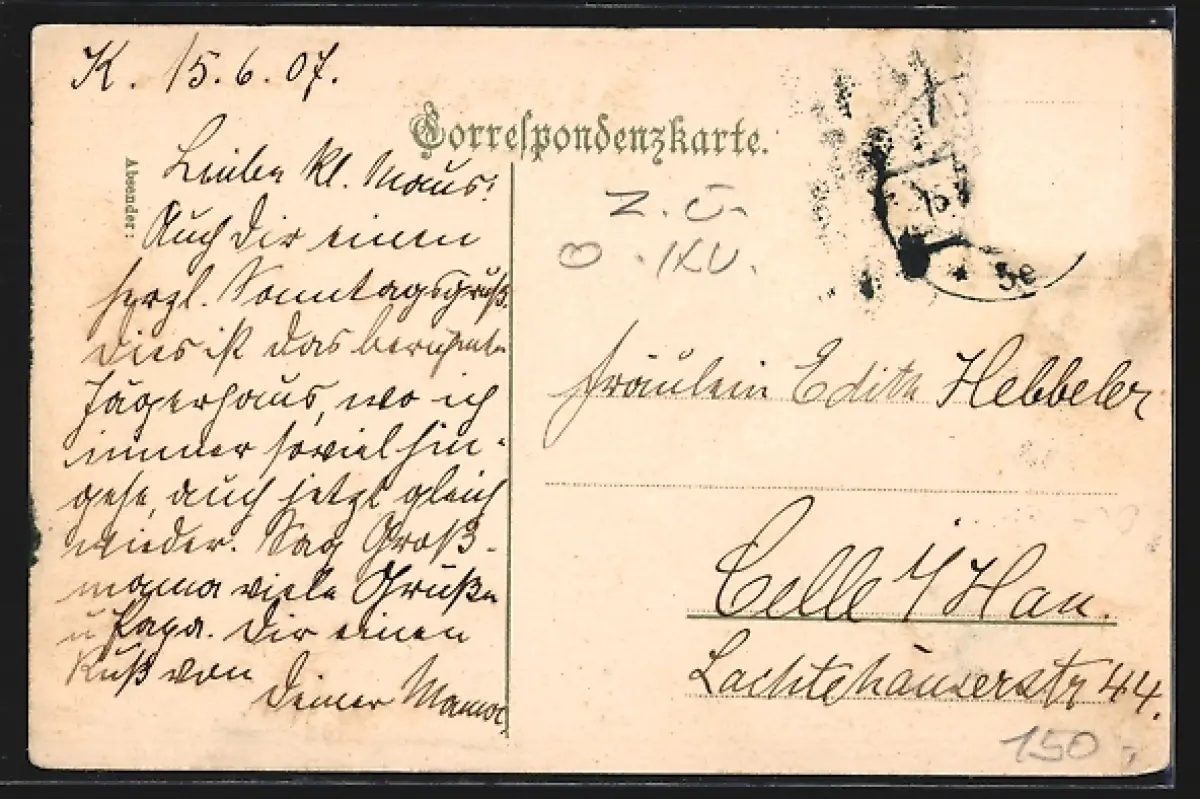 K. 15.6.07.
Correspondenzkarte.
Absender:
Liebe kl. Maus!
Auch Dir einen
herzl. Sonntagsgruß.
Dies ist das berühmte
Jägerhaus, wo ich
immer soviel hin-
gehe, auch jetzt gleich
wieder. Sag Groß-
mama viele Grüße
u Papa. Dir einen
Kuß von
Deiner Mama.
Z. Ü.
Fräulein Edith Hebbeler
Celle i/Han.
Lachtehäuserstr 44.
150,